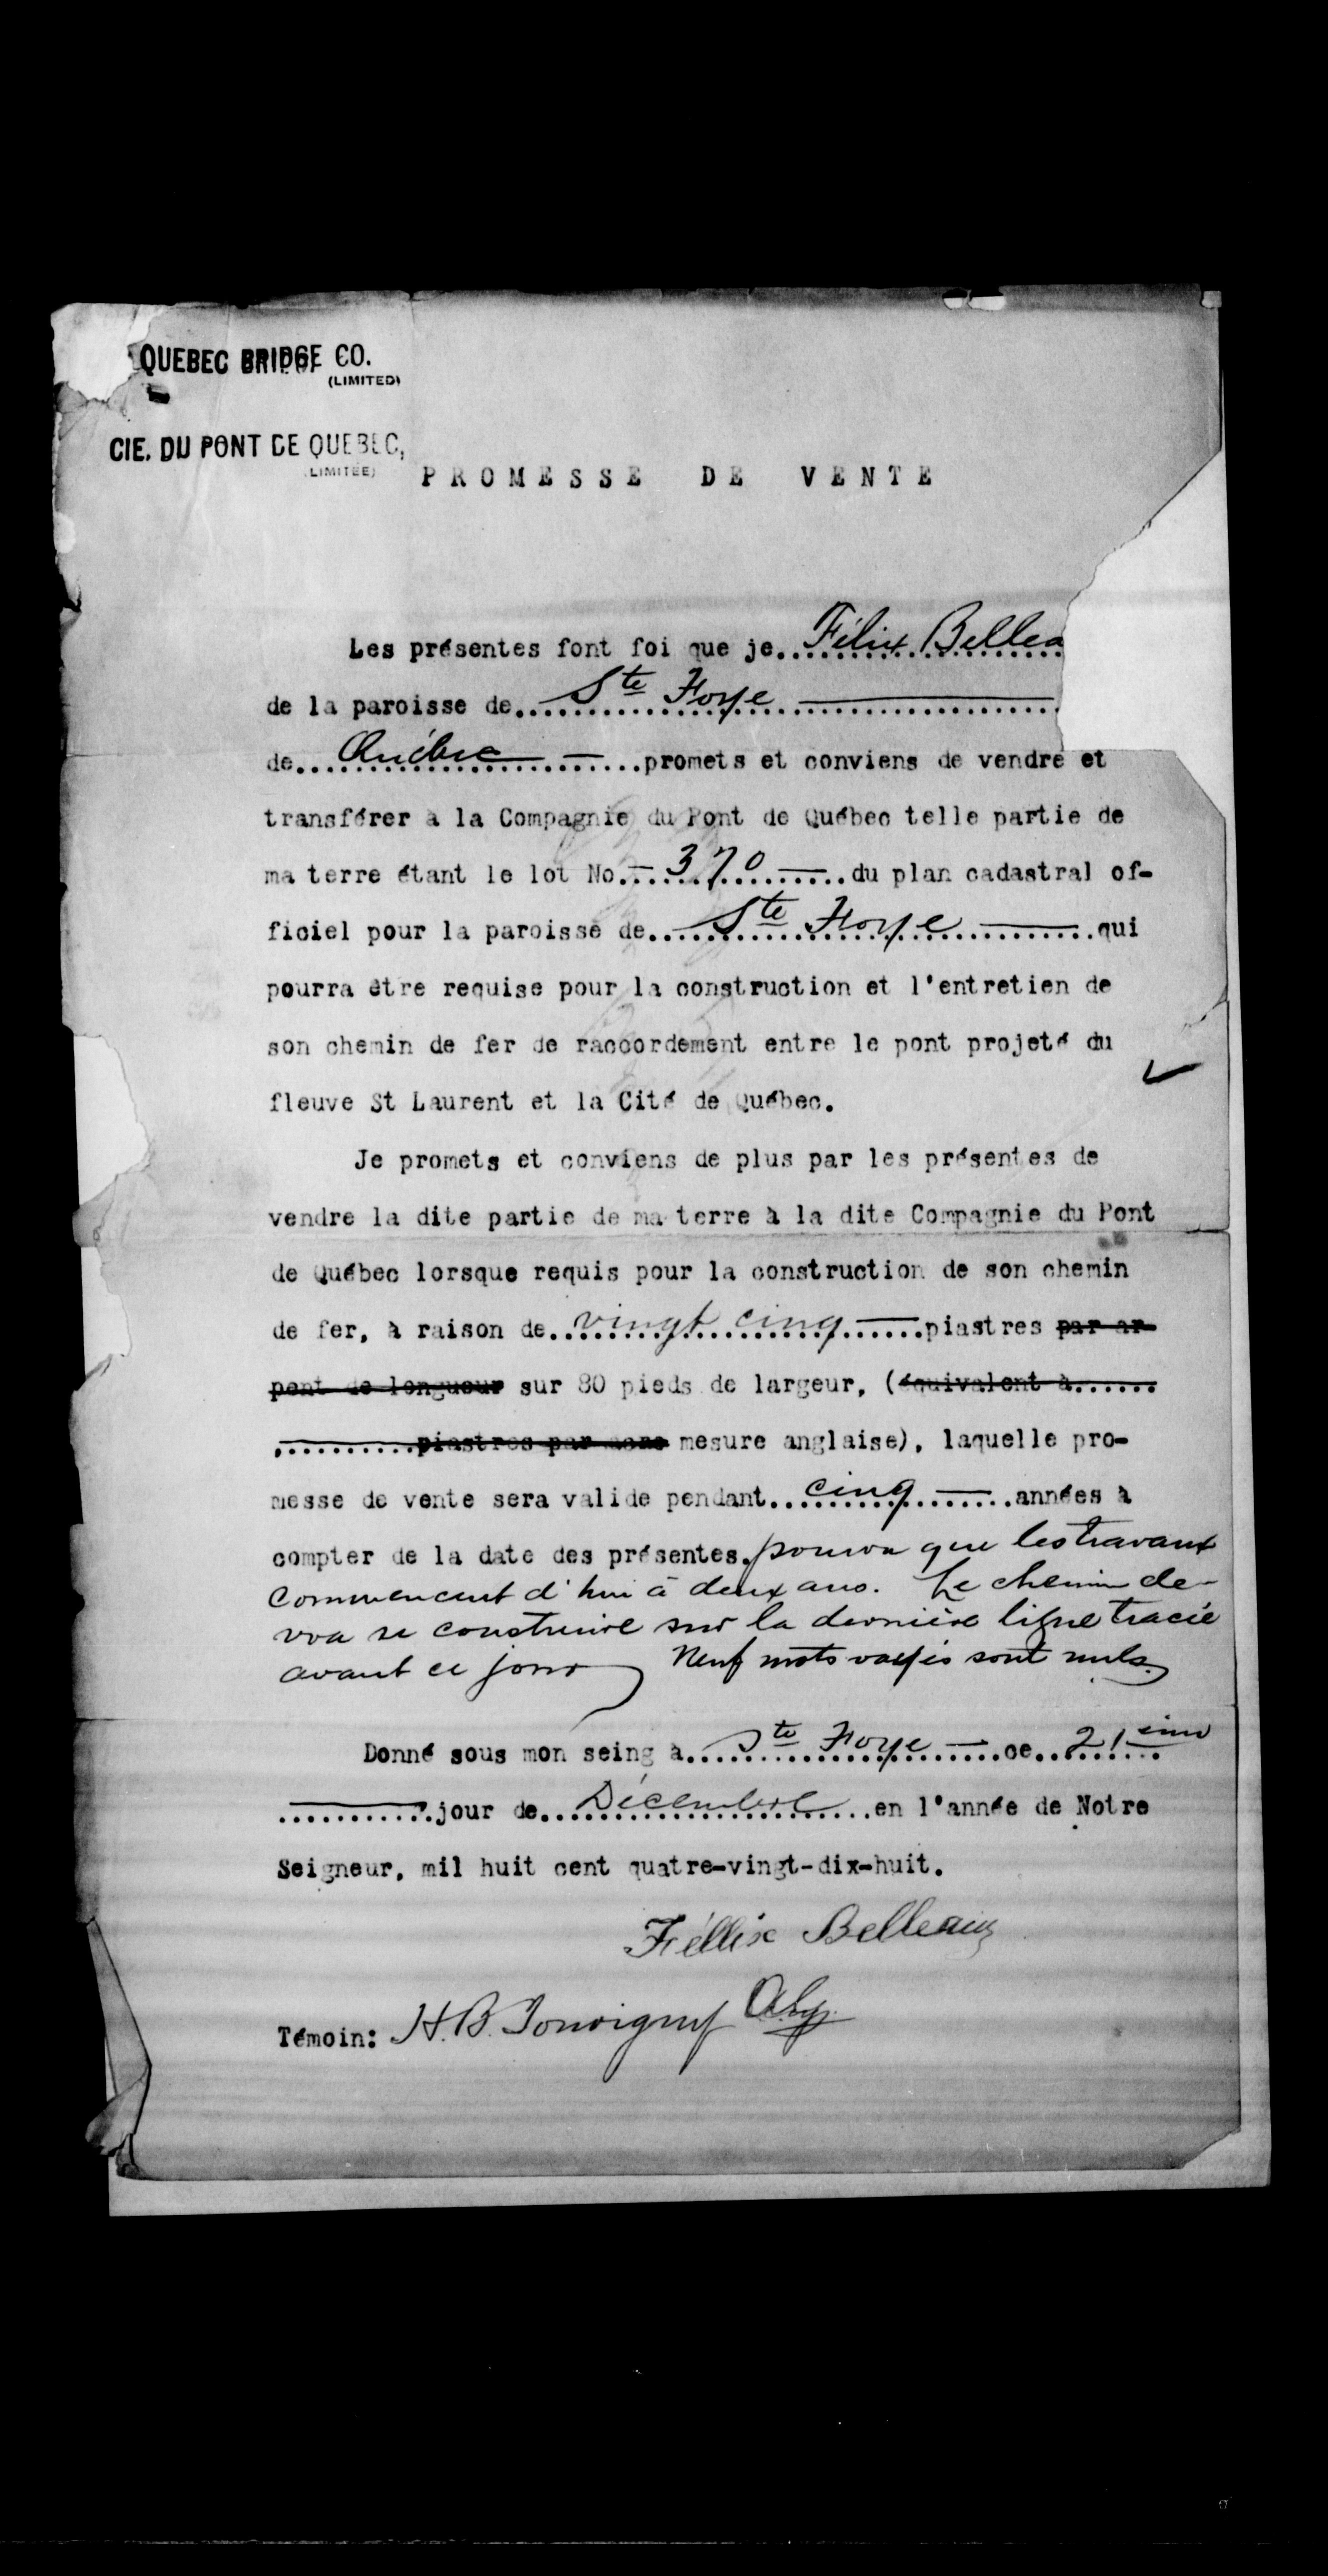 QUEBEC BRIDGE CO.
(LIMITED)
CIE. DU PONT DE QUEBEC,
(LIMITÉE)
PROMESSE DE VENTE
Les présentes font foi que je..Félix Bellea
de la paroisse de...Ste Foye
de...Québec...promets et conviens de vendre et
transférer à la Compagnie du Pont de Québec telle partie de
ma terre étant le lot No...370...du plan cadastral of-
ficiel pour la paroisse de...Ste Foye...qui
pourra être requise pour la construction et l'entretien de
son chemin de fer de raccordement entre le pont projeté du
fleuve St Laurent et la Cité de Québec.
Je promets et conviens de plus par les présentes de
vendre la dite partie de ma terre à la dite Compagnie du Pont
de Québec lorsque requis pour la construction de son chemin
de fer, à raison de...vingt cinq...piastres par ar-
pent de longueur sur 80 pieds de largeur, (équivalent à.......
..........piastres par acre mesure anglaise), laquelle pro-
messe de vente sera valide pendant...cinq...années à
compter de la date des présentes. pourvu que les travaux
commencent d'hui à deux ans. Le chemin de-
vra se construire sur la dernière ligne tracée
avant ce jour Neuf mots rayés sont nuls.
Donné sous mon seing à...Ste Foye...ce...21ième
..........jour de...Décembre...en l'année de Notre
Seigneur, mil huit cent quatre-vingt-dix-huit.
Féllix Belleau
Témoin: H.B.